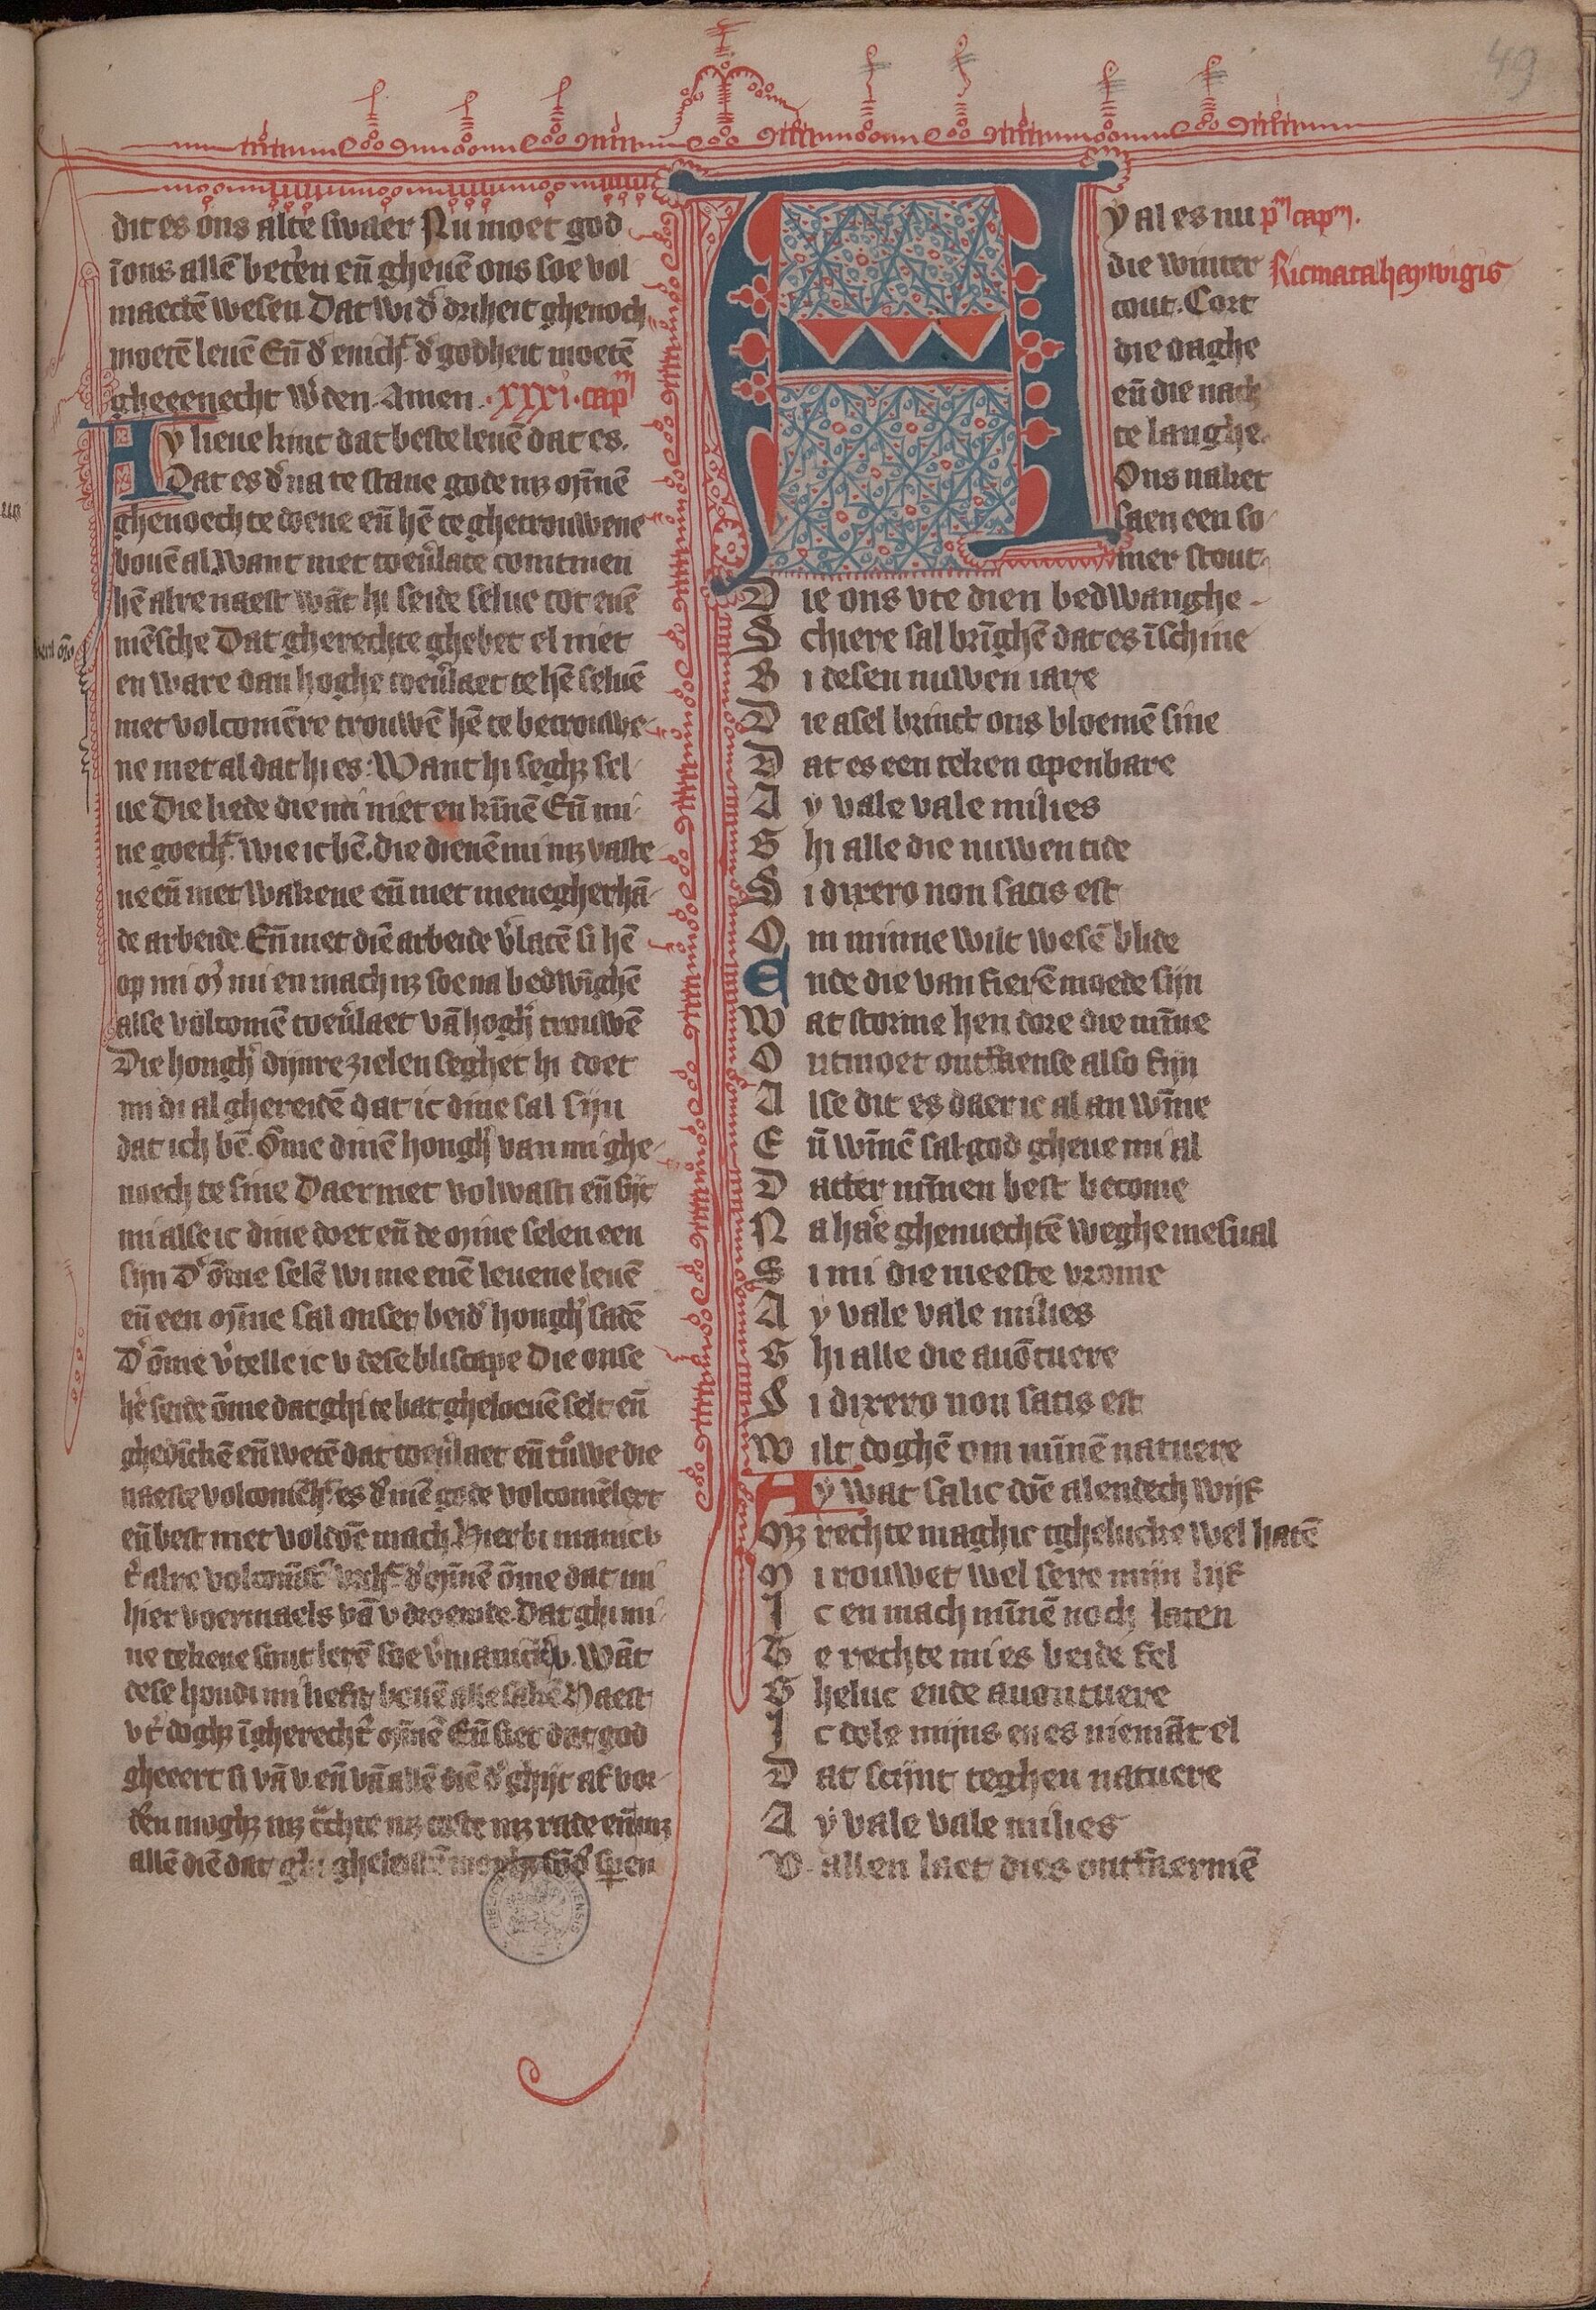 49
dit es ons alte swaer Nu moet god
ons allē betʼen eñ gheuē ons soe vol
maectē wesen Dat wi dʼ driheit ghenoch
moetē leuē Eñ dʼ enichʼ dʼ godheit moetē
gheeenecht wʼden. Amen. XXXI. capᵐ
Ay lieue kint dat beste leuē dat es.
Dat es dʼ na te stane gode mʒ mīnē
ghenoech te doene eñ hē te ghetrouwene
bouē al. Want met toeuʼlate comtmen
hē alre naest wāt hi seide selue tot enē
mēsche Dat gherechte ghebet el niet
en ware dan hoghe toeuʼlaet te hē seluē
met volcomēre trouwē hē te betrouwe
ne met al dat hi es. Want hi seghʒ sel
ue Die liede die mi niet en kīnē Eñ mi
ne goetʼ wie ic bē. die dienē mi mʒ vaste
ne eñ met wakene eñ met menegherhā
de arbeide. Eñ met diē arbeide vʼlatē si hē
op mi mʼ mi en mach mʒ soe na bedwīghē
alse volcomē toeuʼlaet vā hoghʼ trouwē
Die honghʼ dijnre zielen seghet hi doet
mi di al ghereidē dat ic dine sal sijn
dat ich bē. Ōme dinē honghʼ van mi ghe
noech te sine Daermet volwasti eñ bijt
mi alse ic dine doet eñ de mine selen een
sijn Dʼ ōme selē wi me enē leuene leuē
eñ een mīne sal onser beidʼ honghʼ sadē
Dʼ ōme vʼtelle ic v dese bliscape Die onse
hʼe seide ōme dat ghi te bat ghelouē selt eñ
ghedīckē eñ wetē dat toeuʼlaet eñ tʼuwe die
naeste volcomēhʼ es dʼ mē gode volcomēlect
eñ best met voldoē mach. Hier bi manic v
tʼ alre volcomē dʼ mīnē ōme dat mi
hier voermaels vā v droemde. Dat ghi mi
ne tekene sout lerē soe vʼmanic v. Wāt
dese houdi mi bouē alle sakē Haest
vtʼ doghʒ īgherechtʼ mīnē Eñ siet dat god
gheeert si vā v. eñ vā allē diē dʼ ghijt af vor
dʼen moghʒ mʒ mʒ coste mʒ rade eñ mʒ
allē diē dat ghi sondʼ spen
Ay al es nu pᵐ capᵐ.
die winter Ricmata haywigis
cout. Cort
die daghe
eñ die nach
te langhe.
Ons naket
saen een so
mer stout
Die ons vte dien bedwanghe
Schiere sal brīghē dat es ī schine
Bi desen nuwen iare
Die asel brinct ons bloemē fine
Dat es een teken openbare
Ay vale vale milies
Ghi alle die nuwen tide
Si dixero non satis est
Om minne wilt wesē blide
Ende die van fierē moede sijn
Wat storme hen dore die mīne
Outmoet ontfaense also fijn
Alse dit es daer ic al an wīne
Eñ wīnē sal. god gheue mi al
Datter mīnen best become
Na haʼe ghenuechtē weghe mesual
Si mi die meeste vrome
Ay vale vale milies
Ghi alle die auōtuere
Si dixero non satis est
Wilt doghē om mīnē natuere
Ay wat salic doē alendech wijf
Mʒ rechte maghic tghelucke wel hatē
Mi rouwet wel sere mijn lijf
Ic en mach mīnē noch laten
Te rechte mi es beide fel
Gheluc ende auontuere
Ic dole mijns en es niemāt el
Dat scijnt teghen natuere
Ay vale vale milies
V allen laet dies ontfaermē